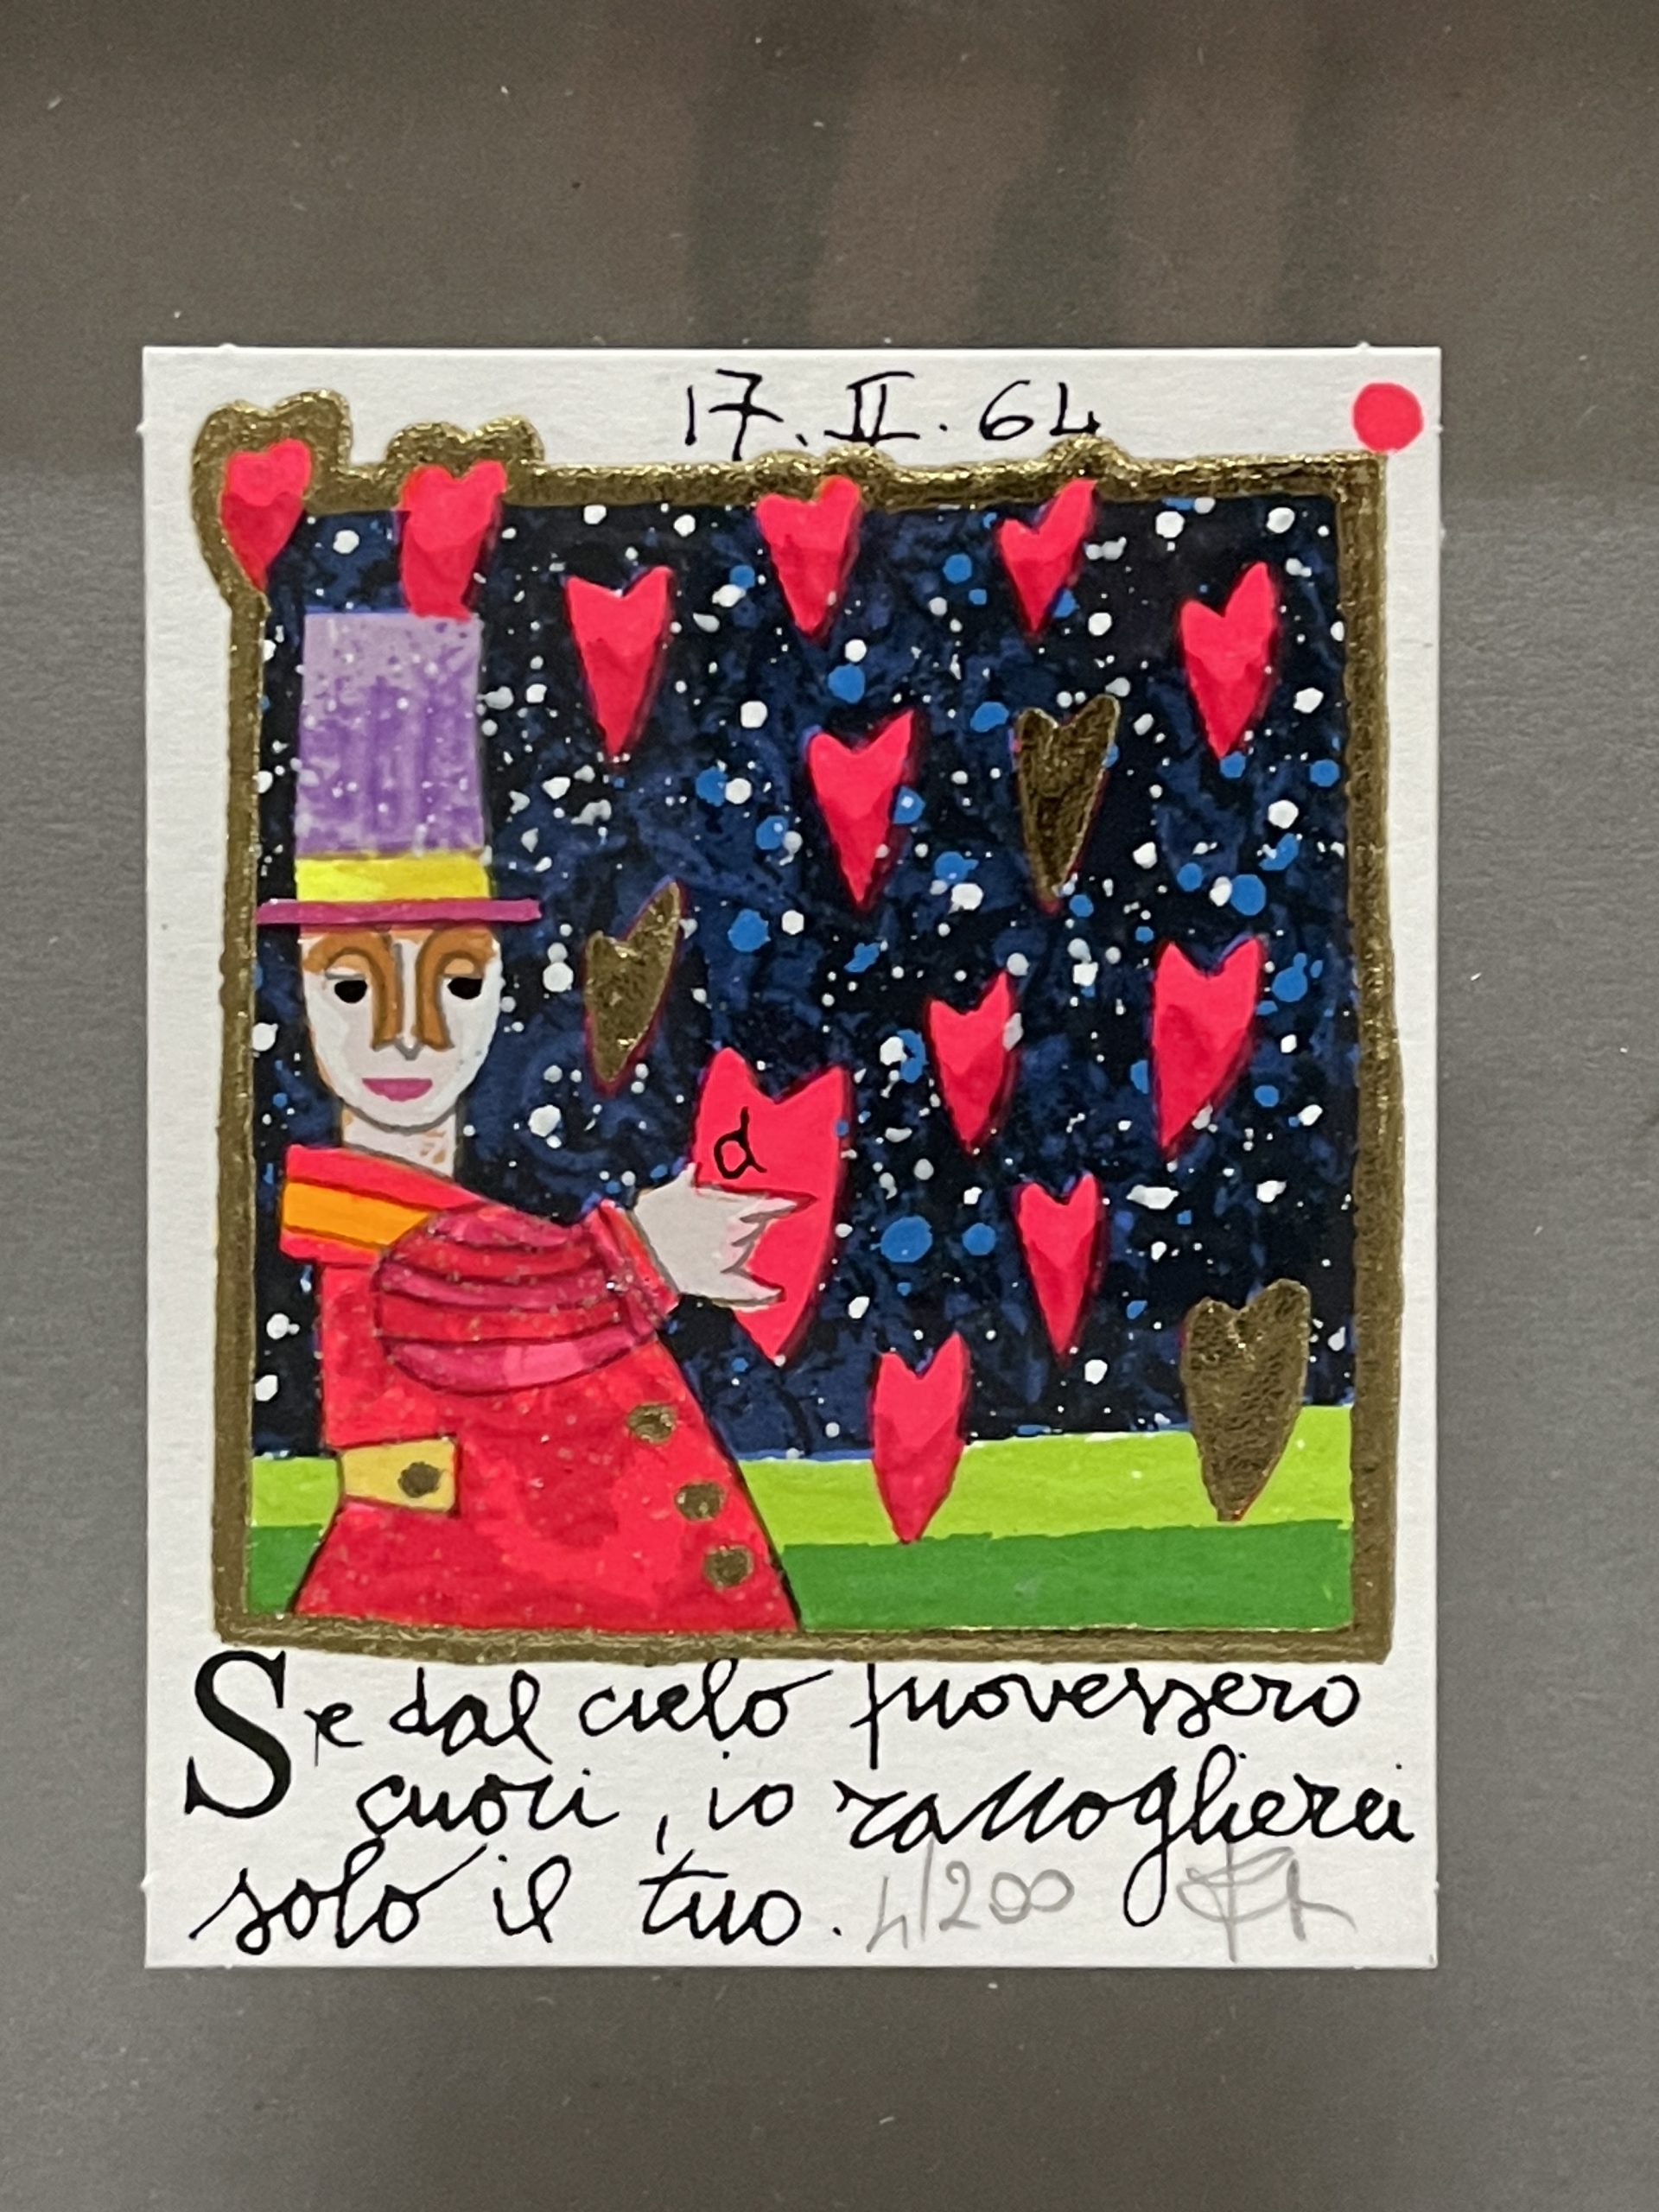 17.II.64
a
Se dal cielo piovessero
cuori, io raccoglierei
solo il tuo. 4/200